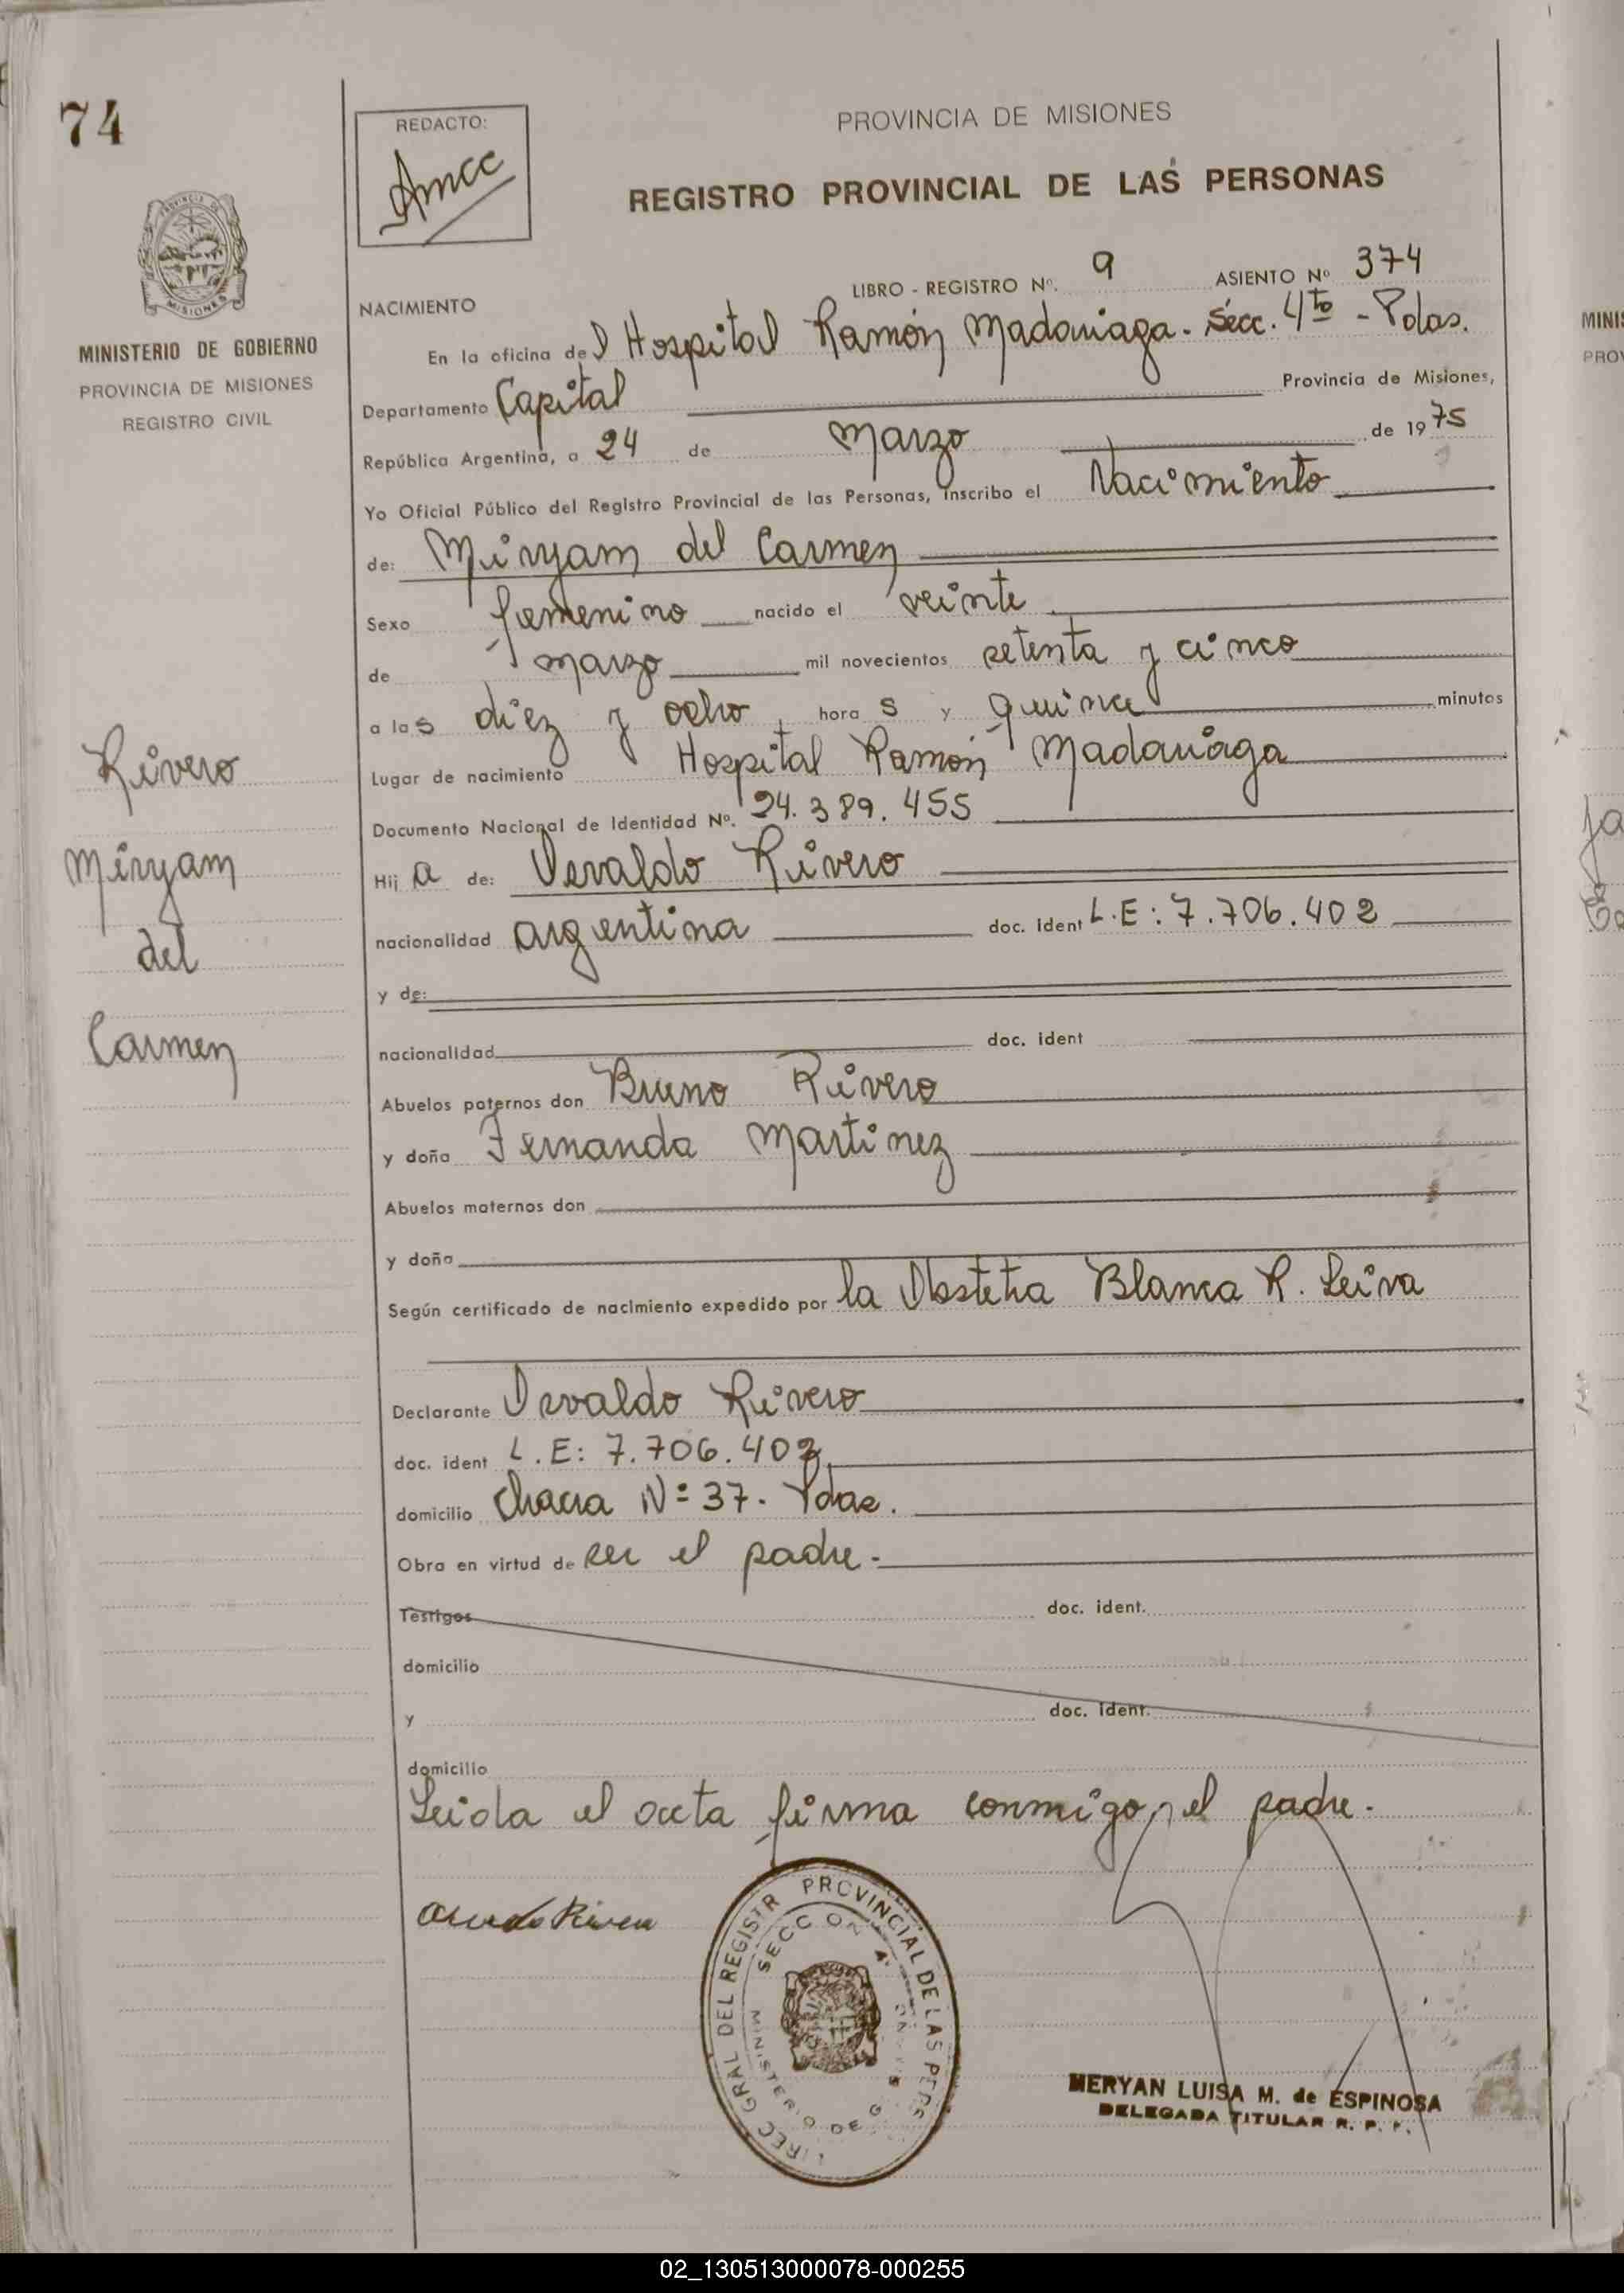 74
REDACTO:
Amcc
PROVINCIA DE MISIONES
REGISTRO PROVINCIAL DE LAS PERSONAS
PROVINCIA DE
MISIONES
MINISTERIO DE GOBIERNO
PROVINCIA DE MISIONES
REGISTRO CIVIL
LIBRO - REGISTRO Nº. 9 ASIENTO Nº 374
NACIMIENTO
En la oficina del Hospital Ramón Madariaga - Secc. 4to - Pdas.
Departamento Capital Provincia de Misiones,
República Argentina, a 24 de Marzo de 1975
Yo Oficial Público del Registro Provincial de las Personas, inscribo el Nacimiento
de: Miryam del Carmen
Sexo femenino nacido el veinte
de marzo mil novecientos setenta y cinco
a las diez y ocho, horas y quince minutos
Lugar de nacimiento Hospital Ramón Madariaga
Documento Nacional de Identidad Nº. 24.389.455
Hija de: Osvaldo Rivero
nacionalidad argentina doc. ident L.E: 7.706.402
y de:
nacionalidad doc. ident
Abuelos paternos don Bruno Rivero
y doña Fernanda Martinez
Abuelos maternos don
y doña
Según certificado de nacimiento expedido por la Obstetra Blanca R. Leiva
Declarante Osvaldo Rivero
doc. ident L.E: 7.706.402
domicilio Chacra Nº 37. Pdas.
Obra en virtud de ser el padre.
Testigos doc. ident.
domicilio
y doc. ident.
domicilio
Leida el acta firma conmigo, el padre.
Rivero
Miryam
del
Carmen
DIREC GRAL DEL REGISTR PROVINCIAL DE LAS PERS
SECCION 4ª
MINISTERIO DE G
MERYAN LUISA M. de ESPINOSA
DELEGADA TITULAR R. P. P.
MINIS
PROV
02_130513000078-000255